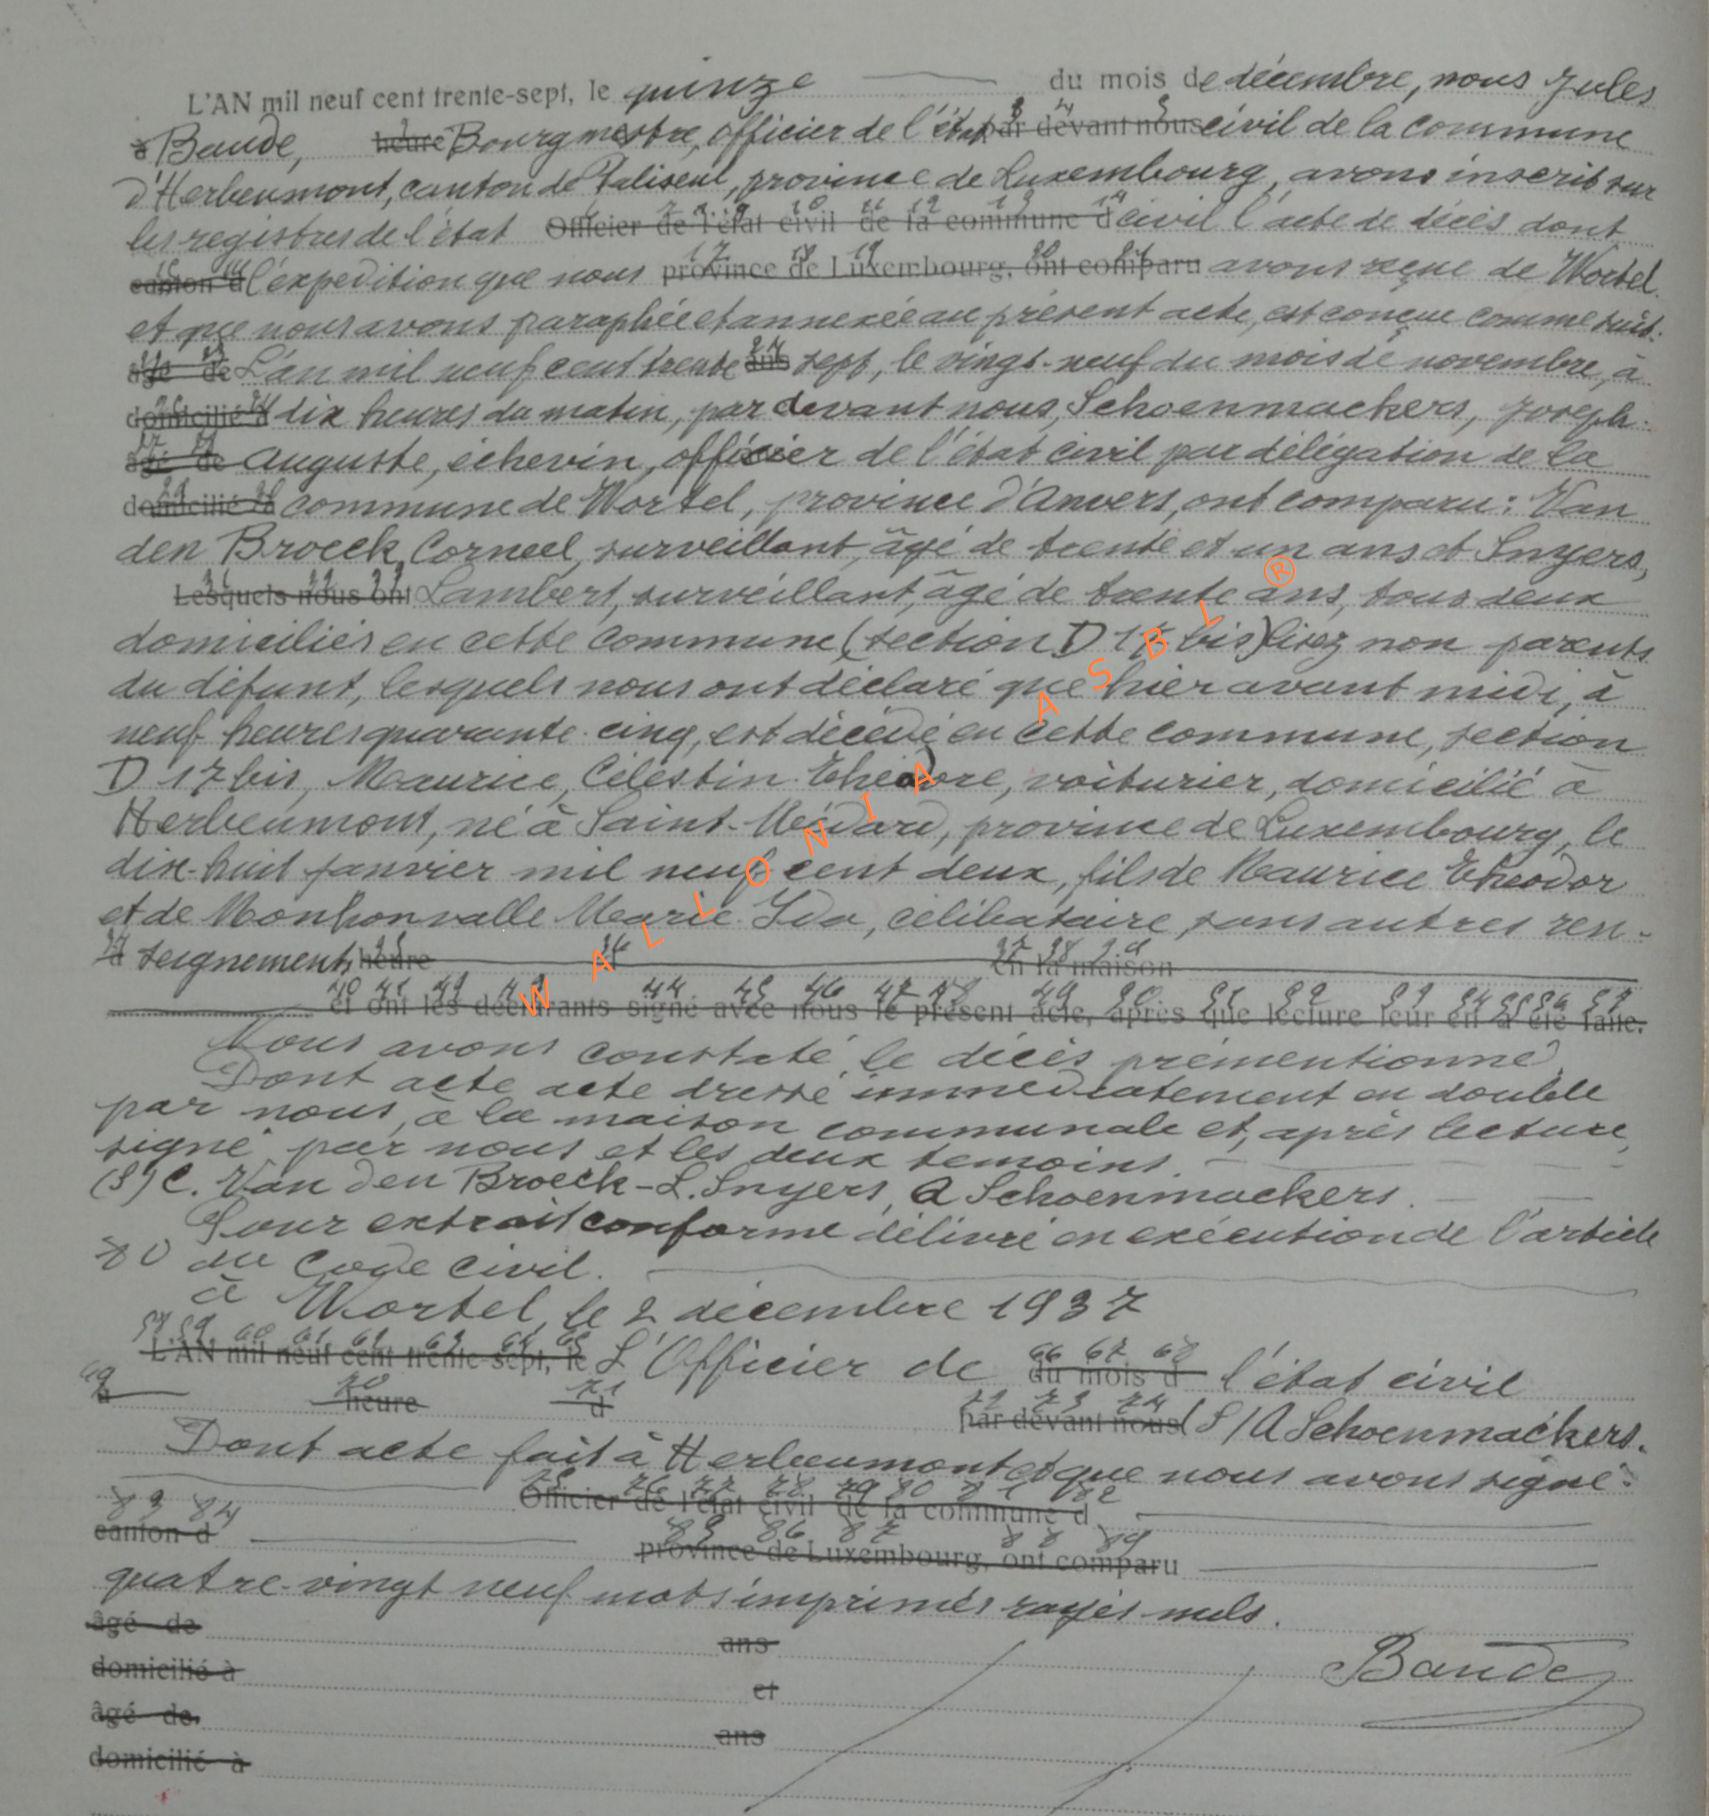 L'AN mil neuf cent trente-sept, le quinze du mois de décembre, nous Jules
à Baude, heure Bourgmestre, officier de l'état par devant nous civil de la commune
d'Herbeumont, canton de Paliseul, province de Luxembourg, avons inscrit sur
les registres de l'état Officier de l'état civil de la commune d civil l'acte de décès dont
canton d l'expedition que nous province de Luxembourg, ont comparu avons reçue de Wortel
et que nous avons paraphée et annexée au présent acte, est conçue comme suit:
âgé de L'an mil neuf cent trente ans sept, le vingt-neuf du mois de novembre, à
domicilié à dix heures du matin, par devant nous, Schoenmackers, Joseph-
âgé de Auguste, échevin, officier de l'état civil par délégation de la
domicilié à commune de Wortel, province d'Anvers, ont comparu: Van
den Broeck, Corneel, surveillant, âgé de trente et un ans et Snyers,
Lesquels nous ont Lambert, surveillant, âgé de trente ans, tous deux
domiciliés en cette commune (section D 17 bis) lisez non parents
du défunt, lesquels nous ont déclaré que hier avant midi, à
neuf heures quarante-cinq, est décédé en cette commune, section
D 17 bis, Maurice, Célestin Théodore, voiturier, domicilié à
Herbeumont, né à Saint-Médard, province de Luxembourg, le
dix-huit janvier mil neuf cent deux, fils de Maurice Théodor
et de Monhonvalle Marie Ida, célibataire, sans autres ren-
à seignements heure en la maison
et ont les déclarants signé avec nous le présent acte, après que lecture leur en a été faite.
Nous avons constaté le décès prémentionné.
Dont acte acte dressé immédiatement en double
par nous, à la maison communale et, après lecture,
signé par nous et les deux témoins.
(S) C. Van den Broeck - L. Snyers, A Schoenmackers.
Pour extrait conforme délivré en exécution de l'article
80 du Code civil.
à Wortel, le 2 décembre 1937
58 59 60 61 62 63 64 65 66 67 68
L'AN mil neuf cent trente-sept, le L'Officier de du mois d l'état civil
69 70 71 72 73 74
à heure d par devant nous (S/A Schoenmackers.
Dont acte fait à Herbeumont et que nous avons signé:
75 76 77 78 79 80 81 82
Officier de l'état civil de la commune d
83 84
canton d
85 86 87 88 89
province de Luxembourg, ont comparu
quatre-vingt neuf mots imprimés rayés nuls.
âgé de ans
domicilié à et
Baude
âgé de ans
domicilié à
WALLONIA ASBL ®